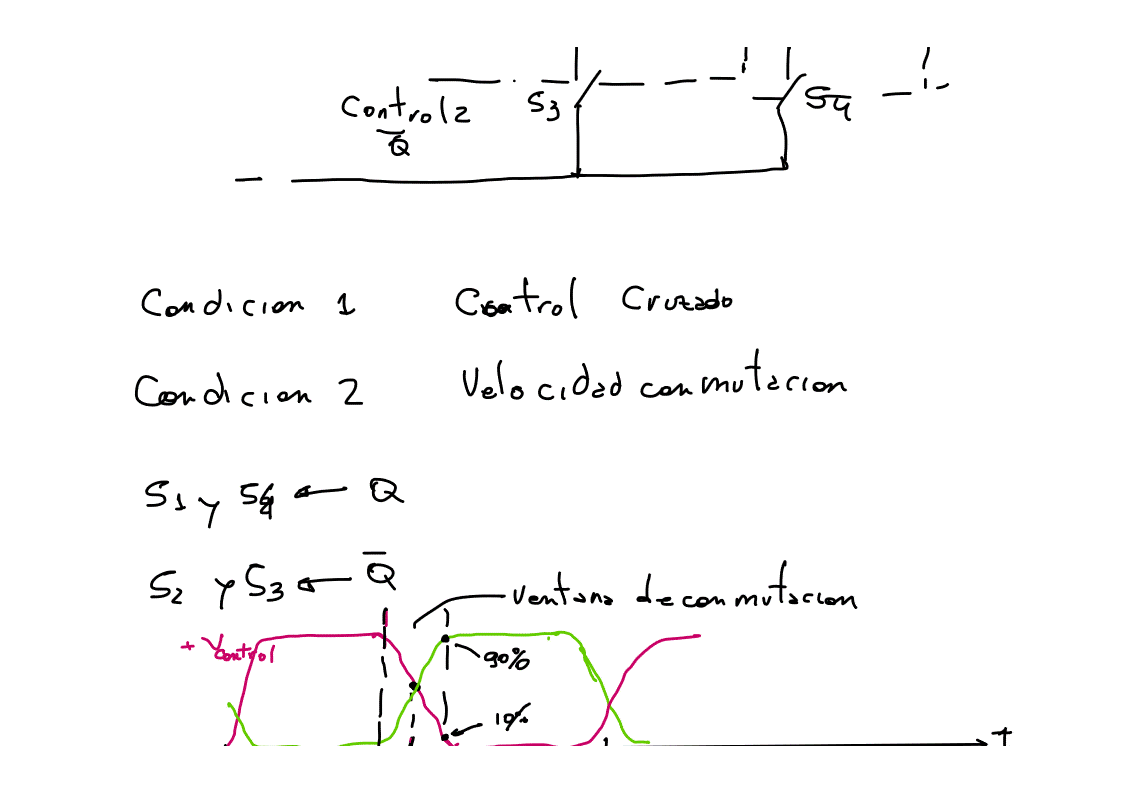 Control 2 S3 S4
Q̅
Condicion 1 Control Cruzado
Condicion 2 Velocidad conmutacion
S1 y S4 ← Q
S2 y S3 ← Q̅
ventana de conmutacion
+ Vcontrol
90%
10%
T